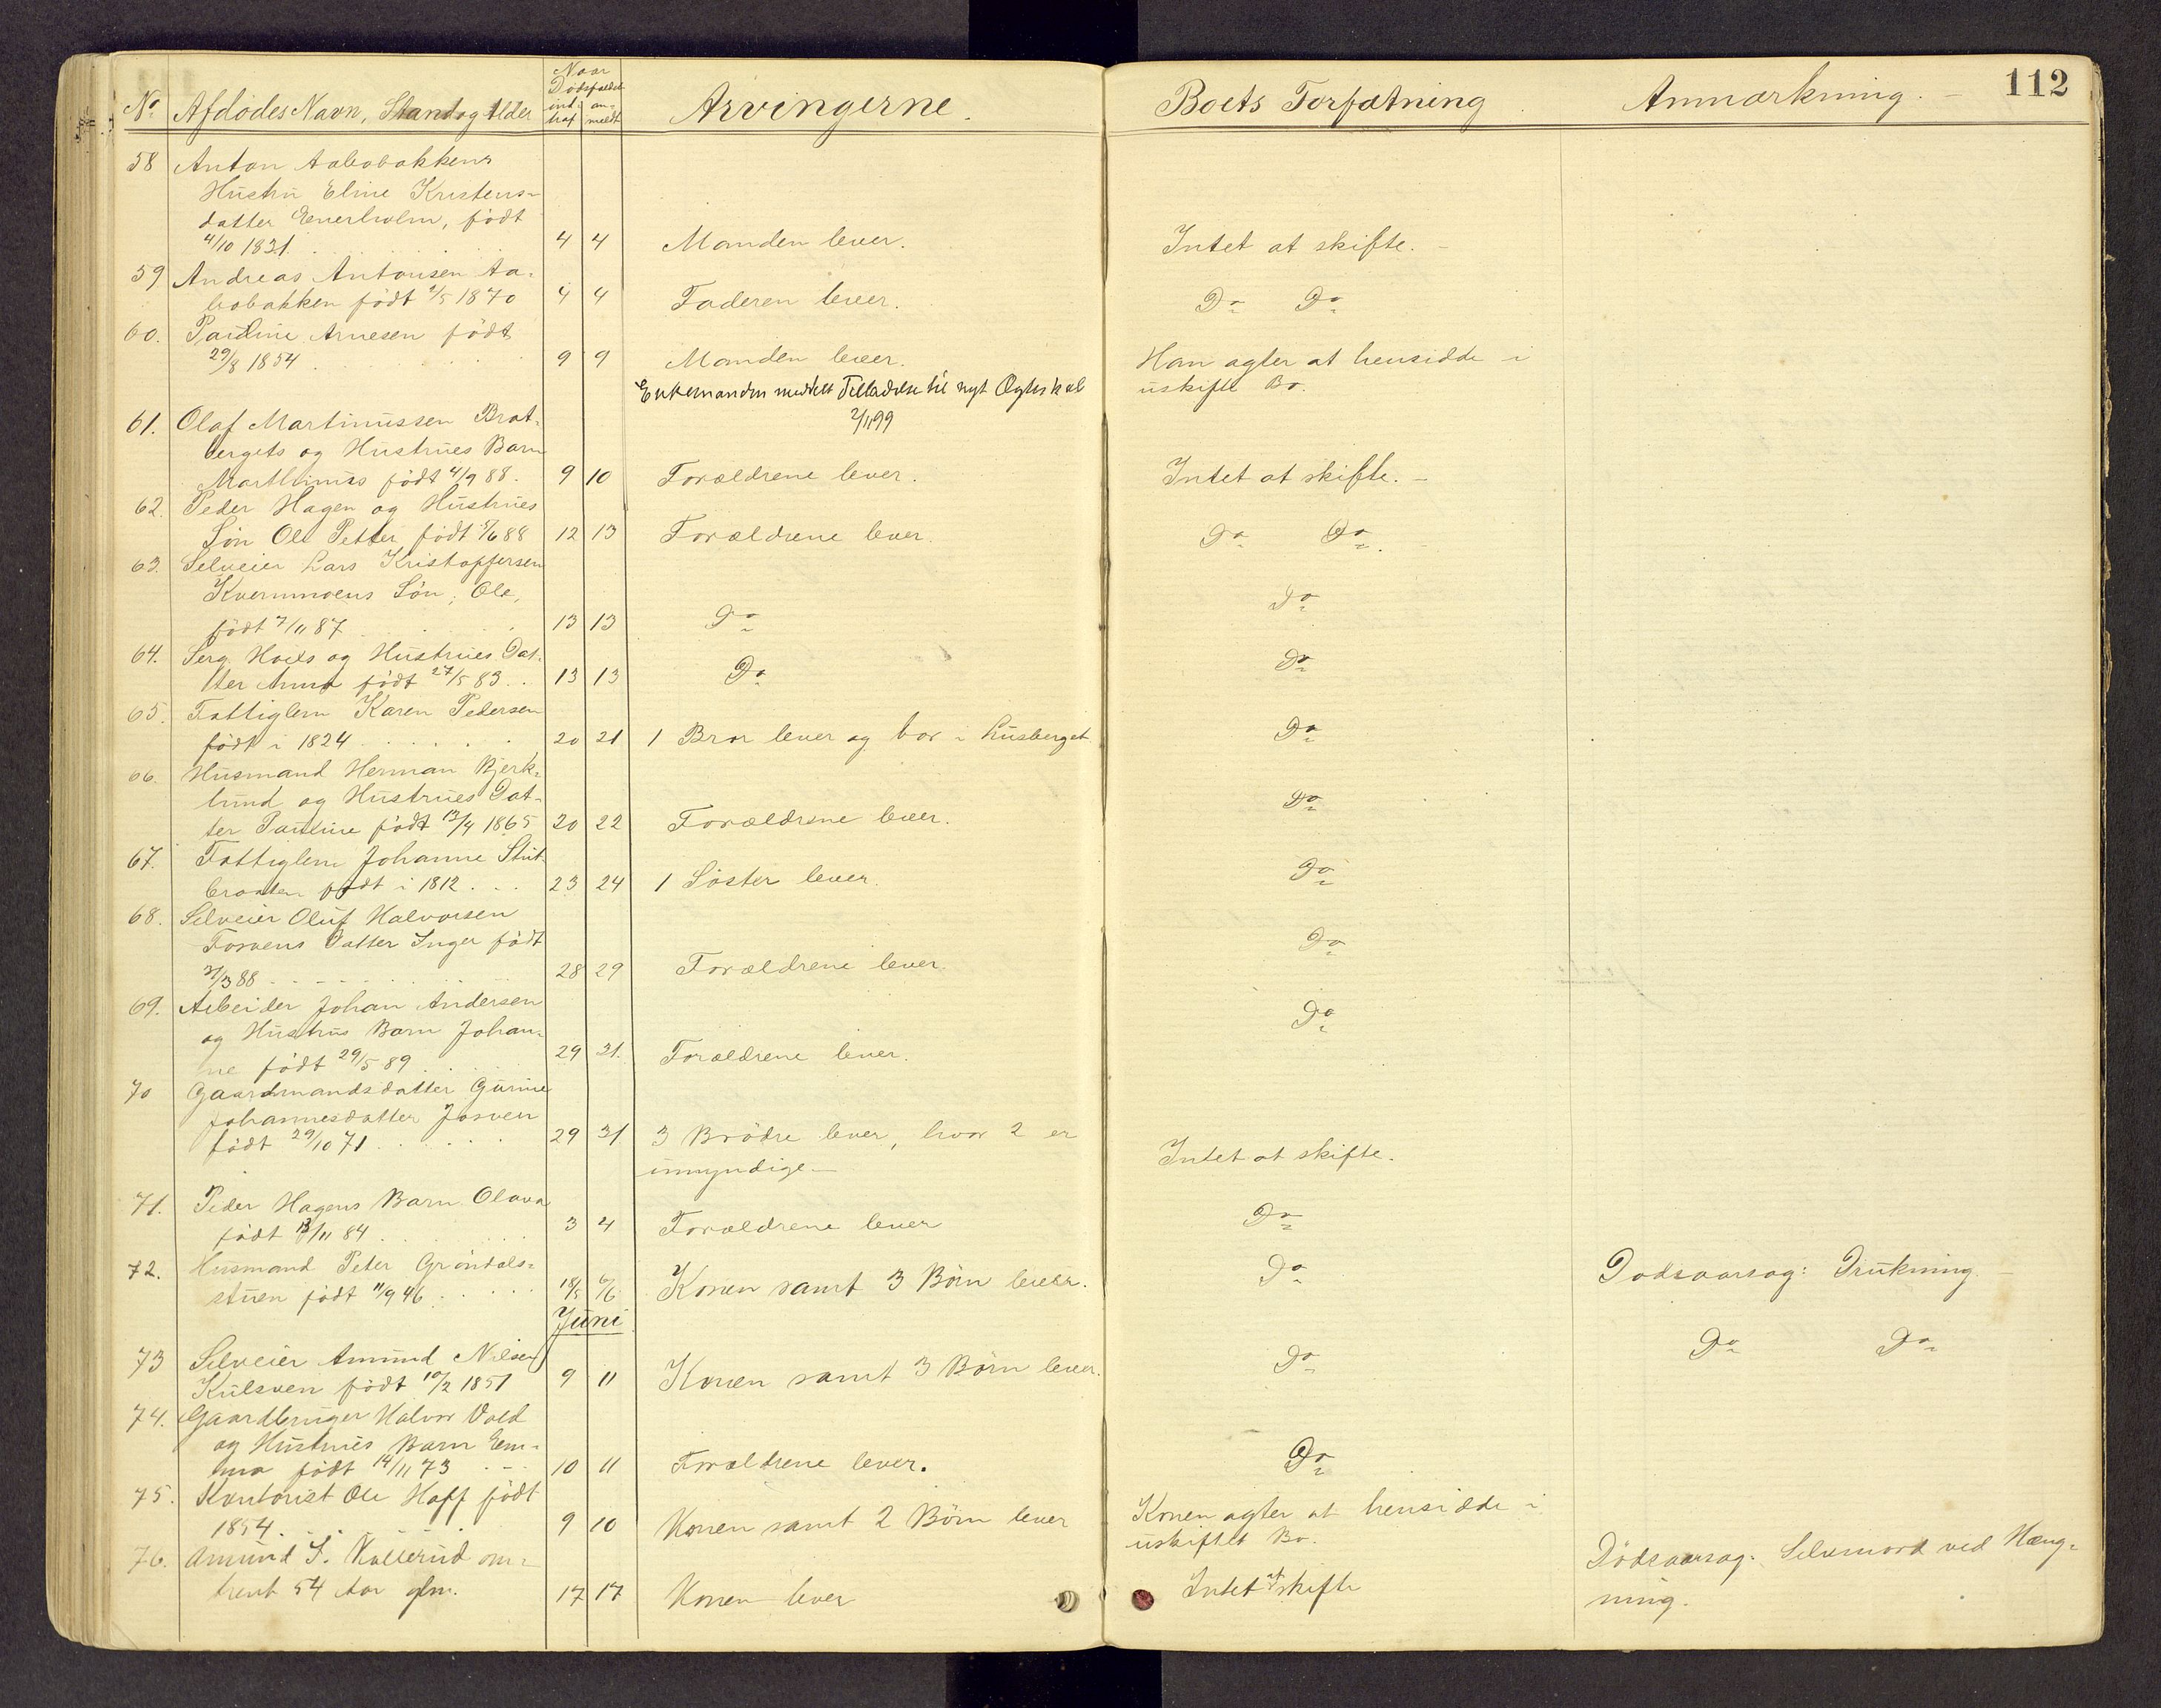 112
No. Afdödes Navn, Stand og Alder Naar Dödsfaldet indtraf anmeldt Arvingerne. Boets Forfatning Anmærkning.
58 Anton Aabobakkens
Hustru Eline Kristens-
datter Enerholm, född
4/10 1831. 4 4 Manden lever. Intet at skifte.
59 Andreas Antonsen Aa-
bobakken född 2/5 1870 4 4 Faderen lever. Do Do
60. Pauline Arnesen född
29/8 1854 9 9 Manden lever. Han agter at hensidde i
uskifte Bo.
Enkemanden meddelt Tilladelse til nyt Ægteskab
2/11 99
61. Olaf Martinussen Brat-
bergets og Hustrues Barn
Marthinus född 4/9 88. 9 10 Forældrene lever. Intet at skifte.
62. Peder Hagen og Hustrues
Sön Ole Petter född 5/6 88 12 13 Forældrene lever. Do Do
63. Selveier Lars Kristoffersen
Kvernmoens Sön, Ole,
född 7/11 87 13 13 Do Do
64. Serg. Hoels og Hustrues Dat-
ter Anna född 27/5 83. 13 13 Do Do
65. Fattiglem Karen Pedersen
född i 1824 20 21 1 Bror lever og bor i Lusberget Do
66. Husmand Herman Bjerk-
lund og Hustrues Dat-
ter Pauline född 13/4 1865 20 22 Forældrene lever. Do
67. Fattiglem Johanne Stut-
braaten född i 1812 23 24 1 Söster lever. Do
68. Selveier Oluf Halvorsen
Fosvens Datter Inger född
31/3 88 28 29 Forældrene lever. Do
69. Arbeider Johan Andersen
og Hustrus Barn Johan-
ne född 29/5 89 29 31. Forældrene lever. Do
70 Gaardmandsdatter Gurine
Johannesdatter Josven
född 29/10 71 29 31 3 Brödre lever, hvor 2 er
umyndige Intet at skifte.
71. Peder Hagens Barn Olava
född 13/11 84 3 4 Forældrene lever Do
72. Husmand Peter Gröndals-
stuen född 11/9 46 18/5 6/6 Konen samt 3 Börn lever. Do Dodsaarsag: Drukning.
Juni
73 Selveier Amund Nilsen
Kulsven född 10/2 1851 9 11 Konen samt 3 Börn lever. Do Do Do
74. Gaardbruger Halvor Vold
og Hustrues Barn Em-
ma född 14/11 73 10 11 Forældrene lever. Do
75. Kontorist Ole Hoff född
1854. 9 10 Konen samt 2 Börn lever Konen agter at hensidde i
uskiftet Bo.
76. Amund S. Kullerud om-
trent 54 Aar glm. 17 17 Konen lever Intet at skifte Dödsaarsag: Selvmord ved Hæng-
ning.